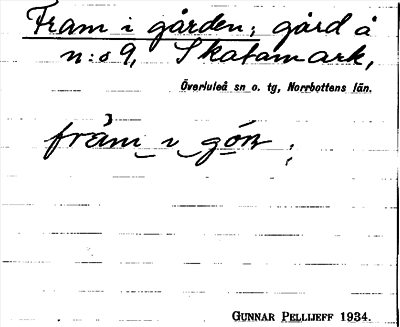 Fram i gården; gård å
n:o 9, Skatamark,
Överluleå sn o. tg, Norrbottens län.
fràm i gó
GUNNAR PELLIJEFF 1934.